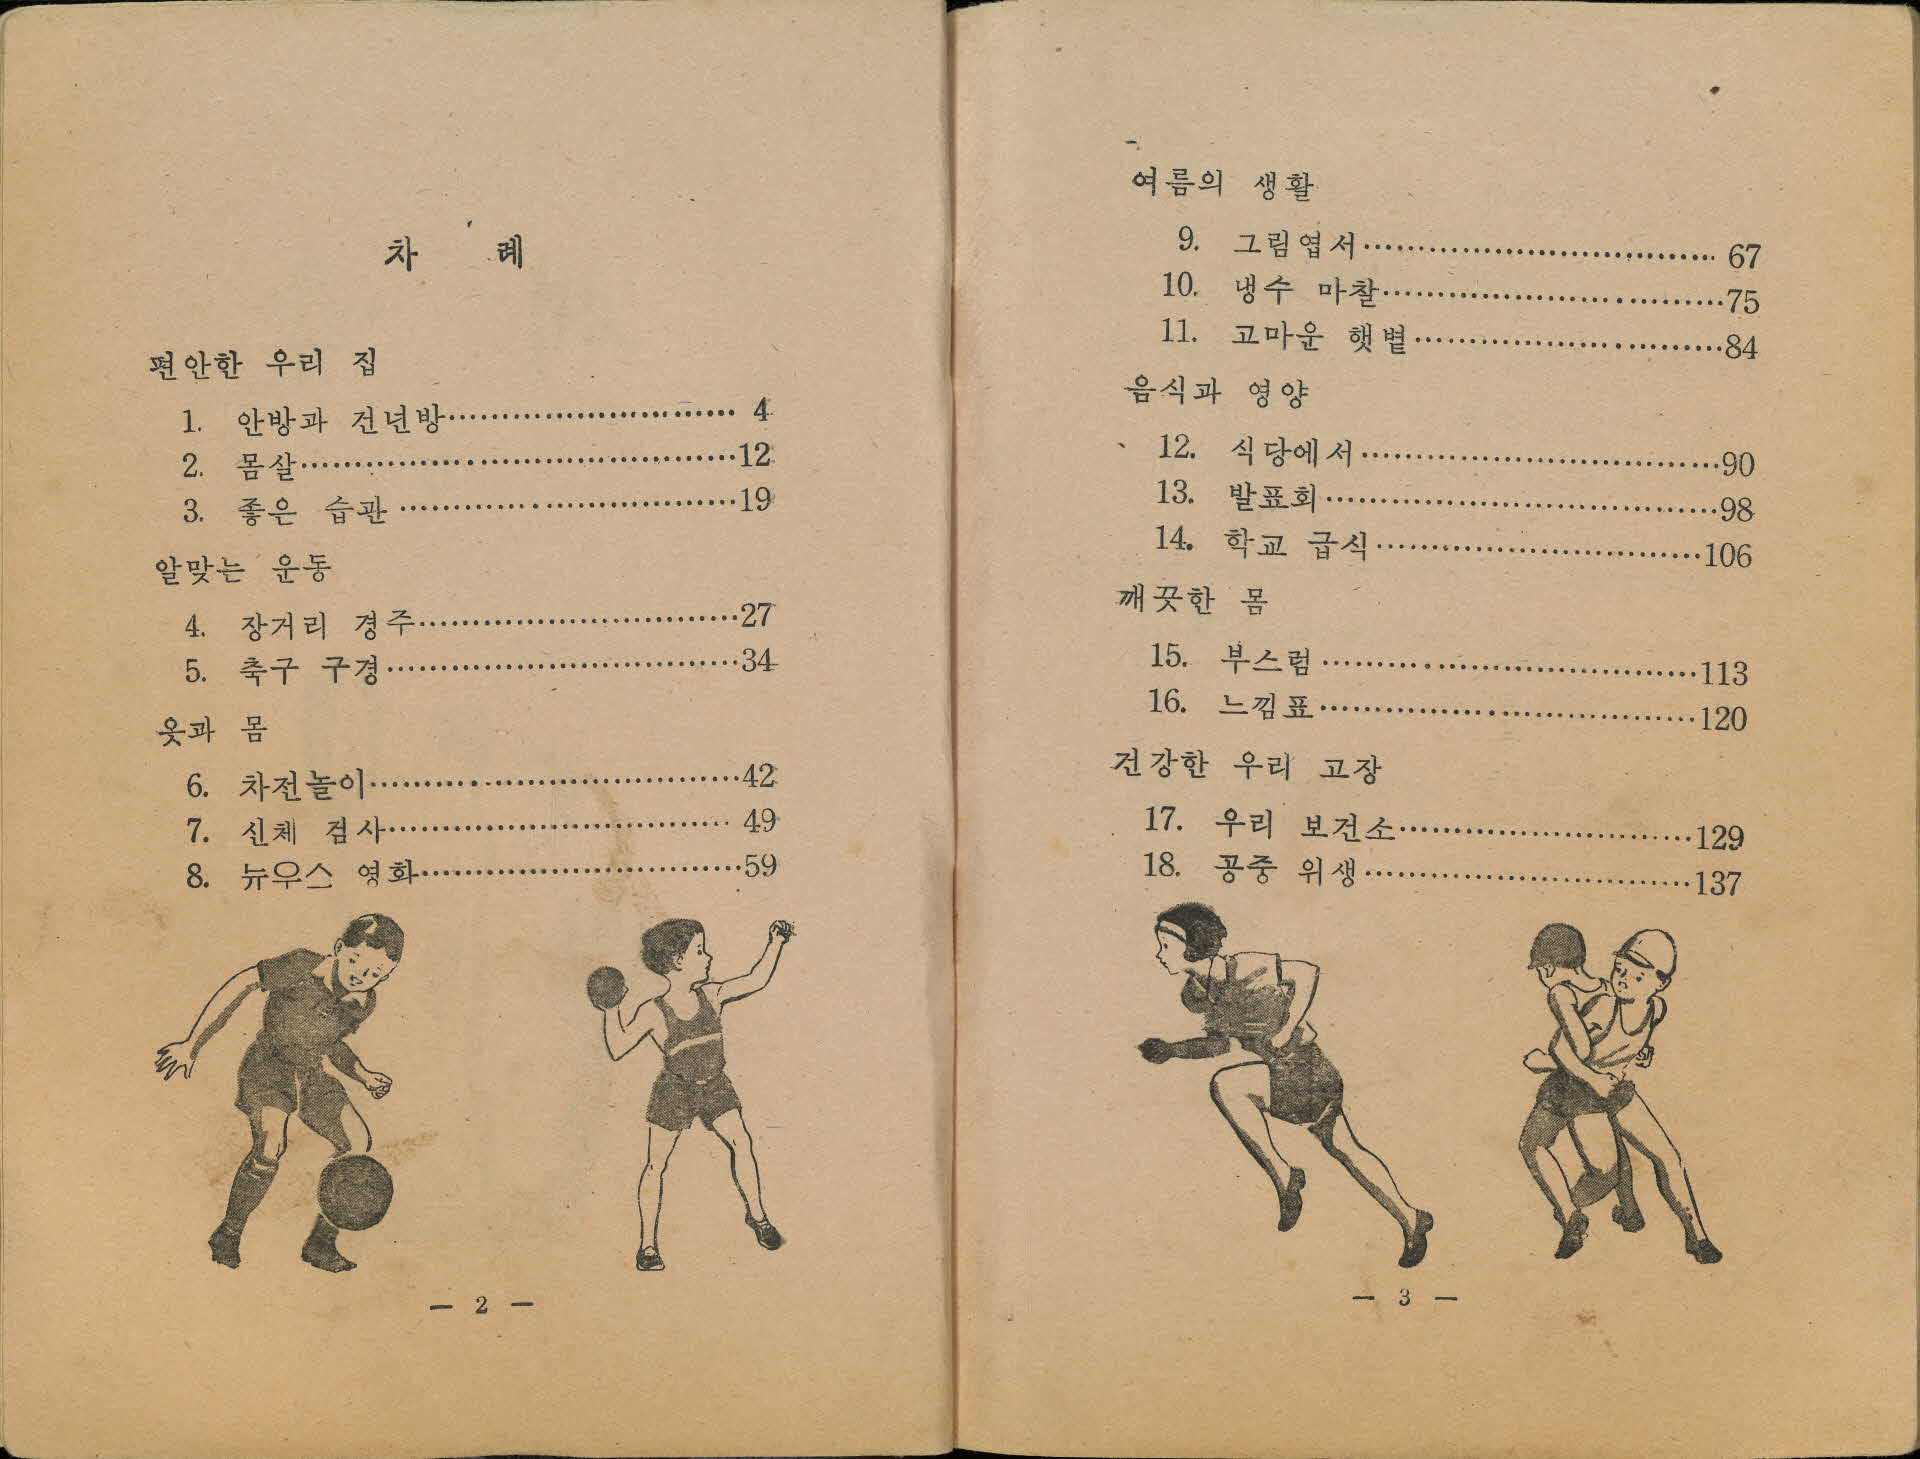 차 례
편안한 우리 집
1. 안방과 건넌방 4
2. 몸살 12
3. 좋은 습관 19
알맞는 운동
4. 장거리 경주 27
5. 축구 구경 34
옷과 몸
6. 차전놀이 42
7. 신체 검사 49
8. 뉴우스 영화 59
— 2 —
여름의 생활
9. 그림엽서 67
10. 냉수 마찰 75
11. 고마운 햇볕 84
음식과 영양
12. 식당에서 90
13. 발표회 98
14. 학교 급식 106
깨끗한 몸
15. 부스럼 113
16. 느낌표 120
건강한 우리 고장
17. 우리 보건소 129
18. 공중 위생 137
— 3 —